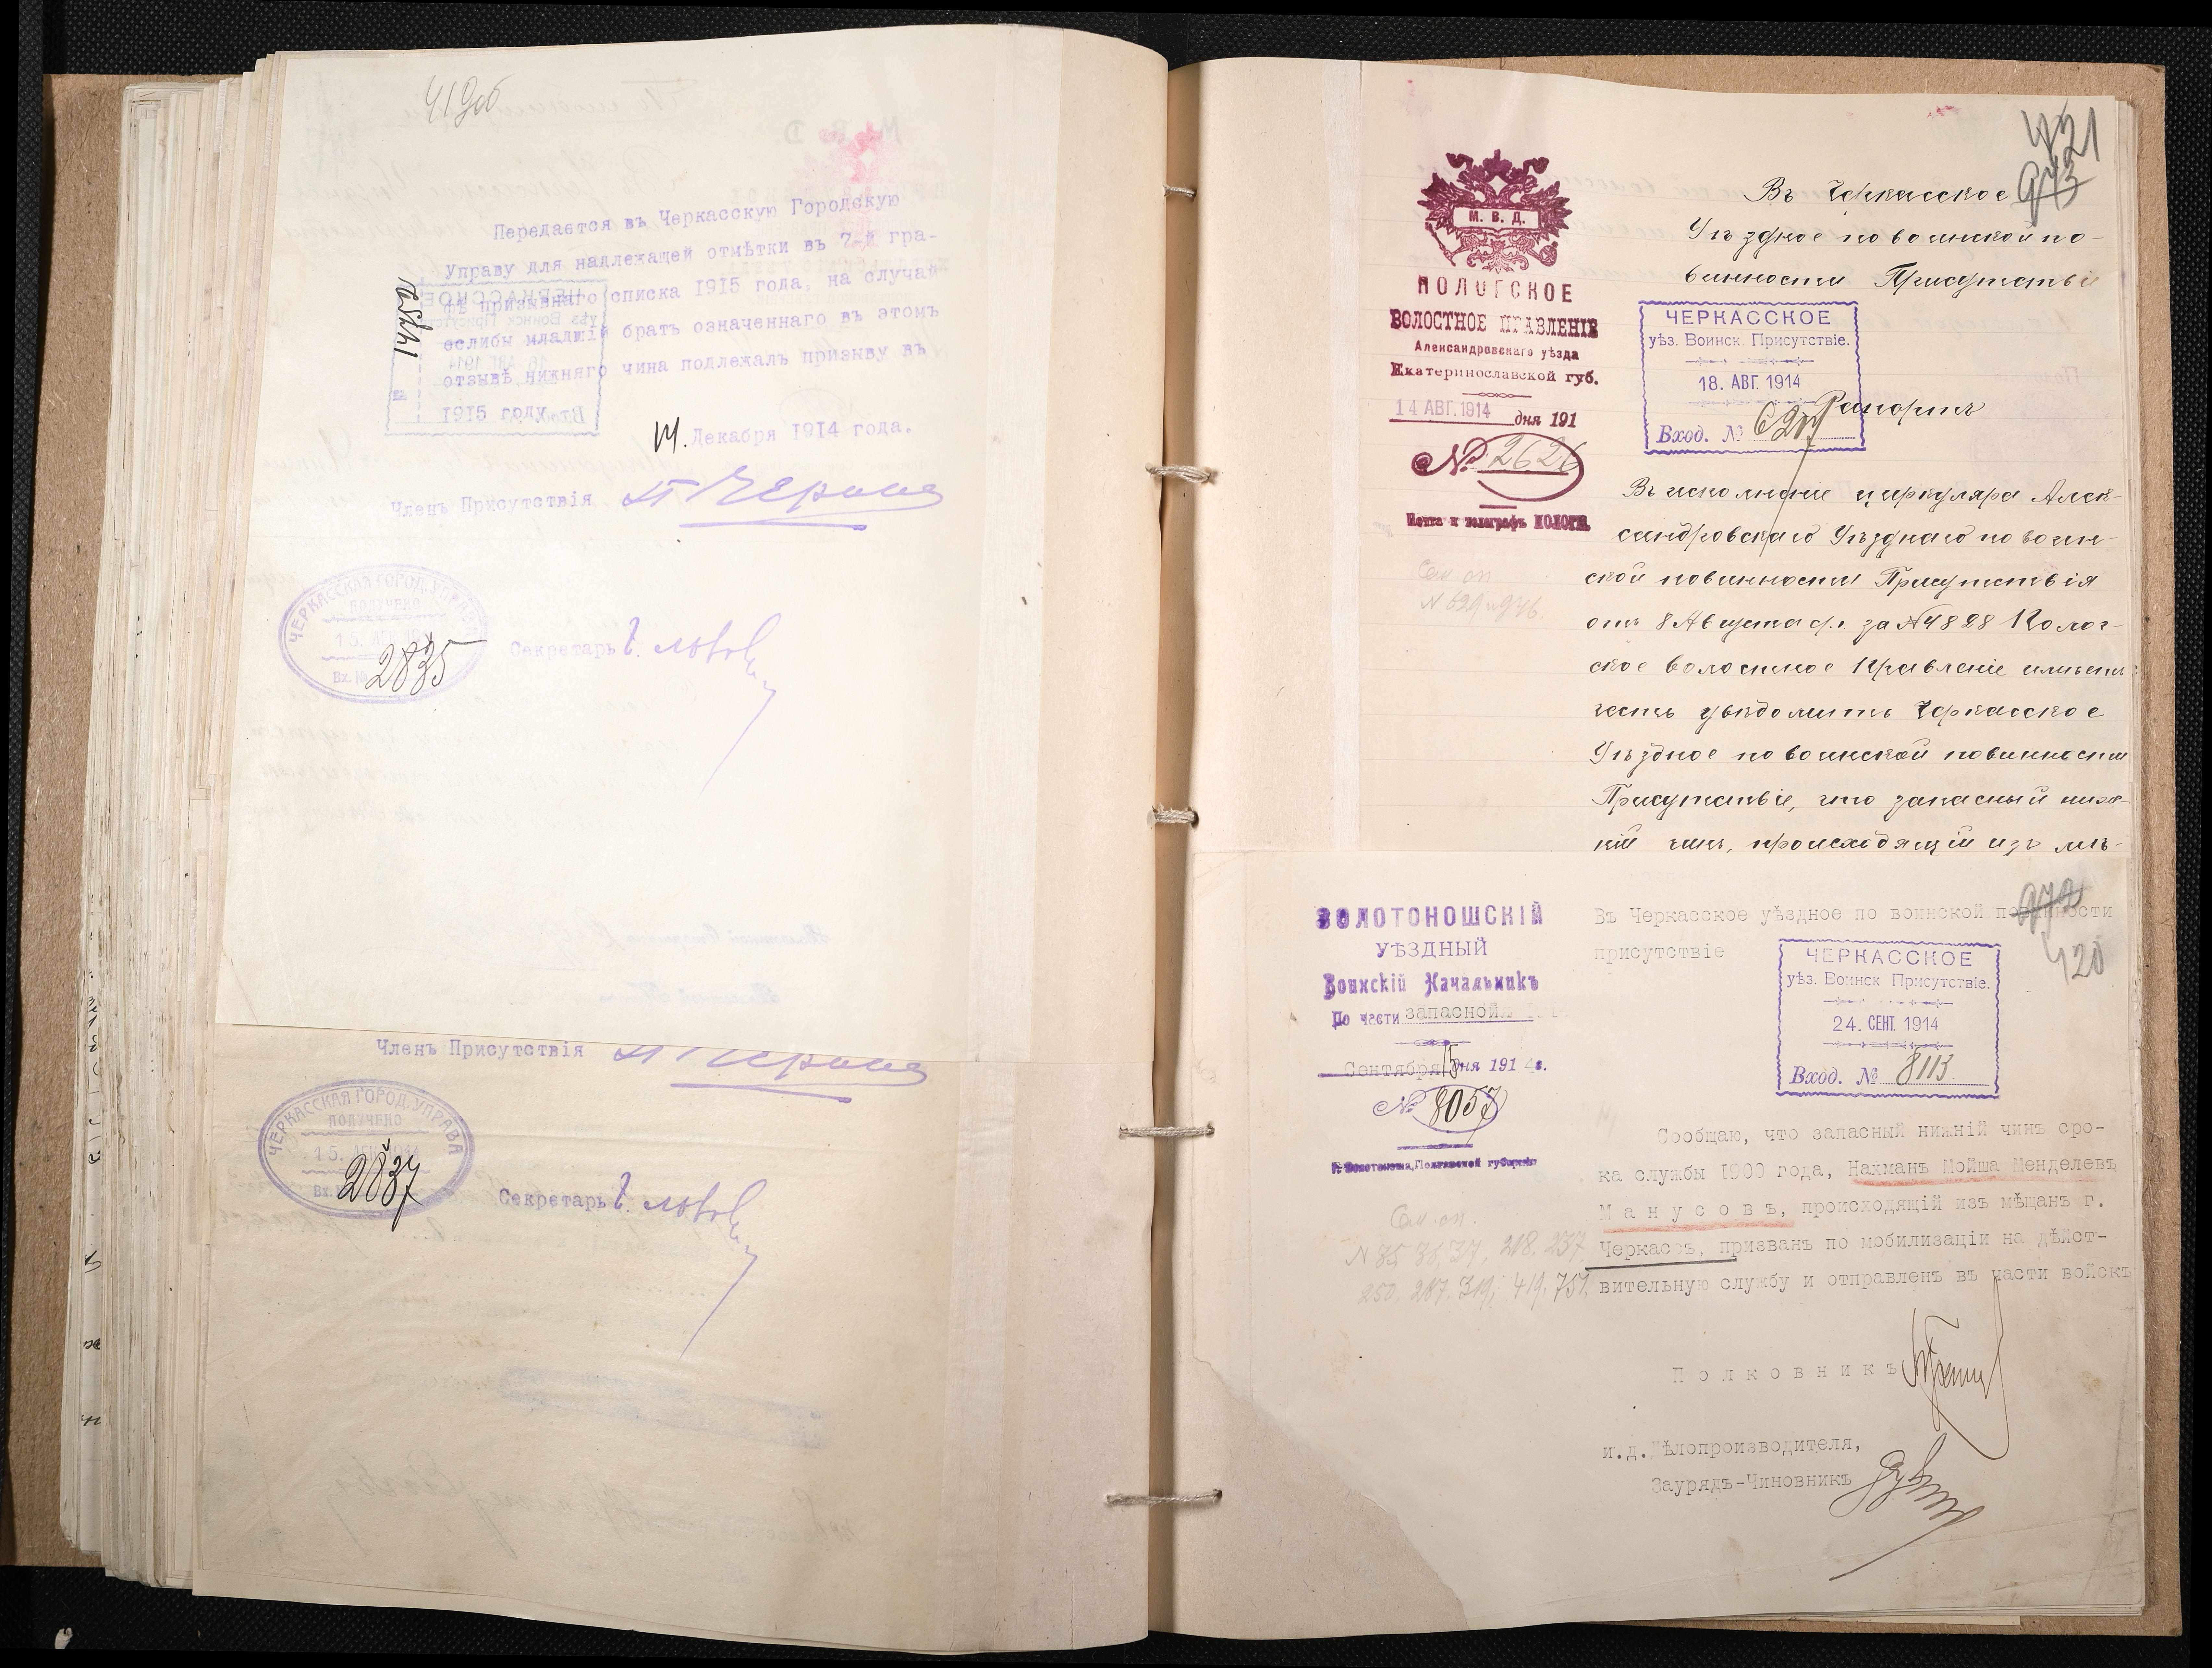 419об
Передается въ Черкасскую Городскую
Управу для надлежащей отмѣтки въ 7-й гра-
фѣ призывнаго списка 1915 года, на случай
еслибы младшій братъ означеннаго въ этомъ
отзывѣ нижняго чина подлежалъ призыву въ
1915 году.
14. Декабря 1914 года.
14751
Членъ Присутствія
ЧЕРКАССКАЯ ГОРОД. УПРАВА
ПОЛУЧЕНО
15.
Вх. №
2835
Секретарь
Членъ Присутствія
ЧЕРКАССКАЯ ГОРОД. УПРАВА
ПОЛУЧЕНО
15.
Вх.
2837
Секретарь
421
973
М. В. Д.
ПОЛОГСКОЕ
ВОЛОСТНОЕ ПРАВЛЕНІЕ
Александровскаго уѣзда
Екатеринославской губ.
14 АВГ. 1914 дня 191
№ 2626
Почта и телеграфъ ПОЛОГИ.
Въ Черкасское
Уѣздное по воинской по-
винности Присутствіе
ЧЕРКАССКОЕ
уѣз. Воинск. Присутствіе.
18. АВГ. 1914
Вход. №
Рапортъ
Въ исполненіе циркуляра Алек-
сандровскаго Уѣзднаго по воин-
ской повинности Присутствія
отъ 8 Августа с/г. за № 4828 Полог-
ское волостное Правленіе имѣетъ
честь увѣдомить Черкасское
Уѣздное по воинской повинности
Присутствіе, что запасный ниж-
ній чинъ, происходящій изъ мѣ-
Сем. оп.
972
420
ЗОЛОТОНОШСКІЙ
УѢЗДНЫЙ
Воинскій Начальникъ
По части запасной
Сентября 15 дня 1914 г.
№ 8057
г. Золотоноша, Полтавской губерніи
Въ Черкасское уѣздное по воинской повинности
присутствіе
ЧЕРКАССКОЕ
уѣз. Воинск Присутствіе.
24. СЕНТ. 1914
Вход. № 8113
Сообщаю, что запасный нижній чинъ сро-
ка службы 1900 года, Нахманъ Мойша Менделевъ
Манусовъ, происходящій изъ мѣщанъ г.
Черкассъ, призванъ по мобилизаціи на дѣйст-
вительную службу и отправленъ въ части войскъ
Сем. оп.
N 85 86, 37, 218. 237
250. 287. 319; 419. 751.
Полковникъ
и.д.Дѣлопроизводителя,
Заурядъ-Чиновникъ